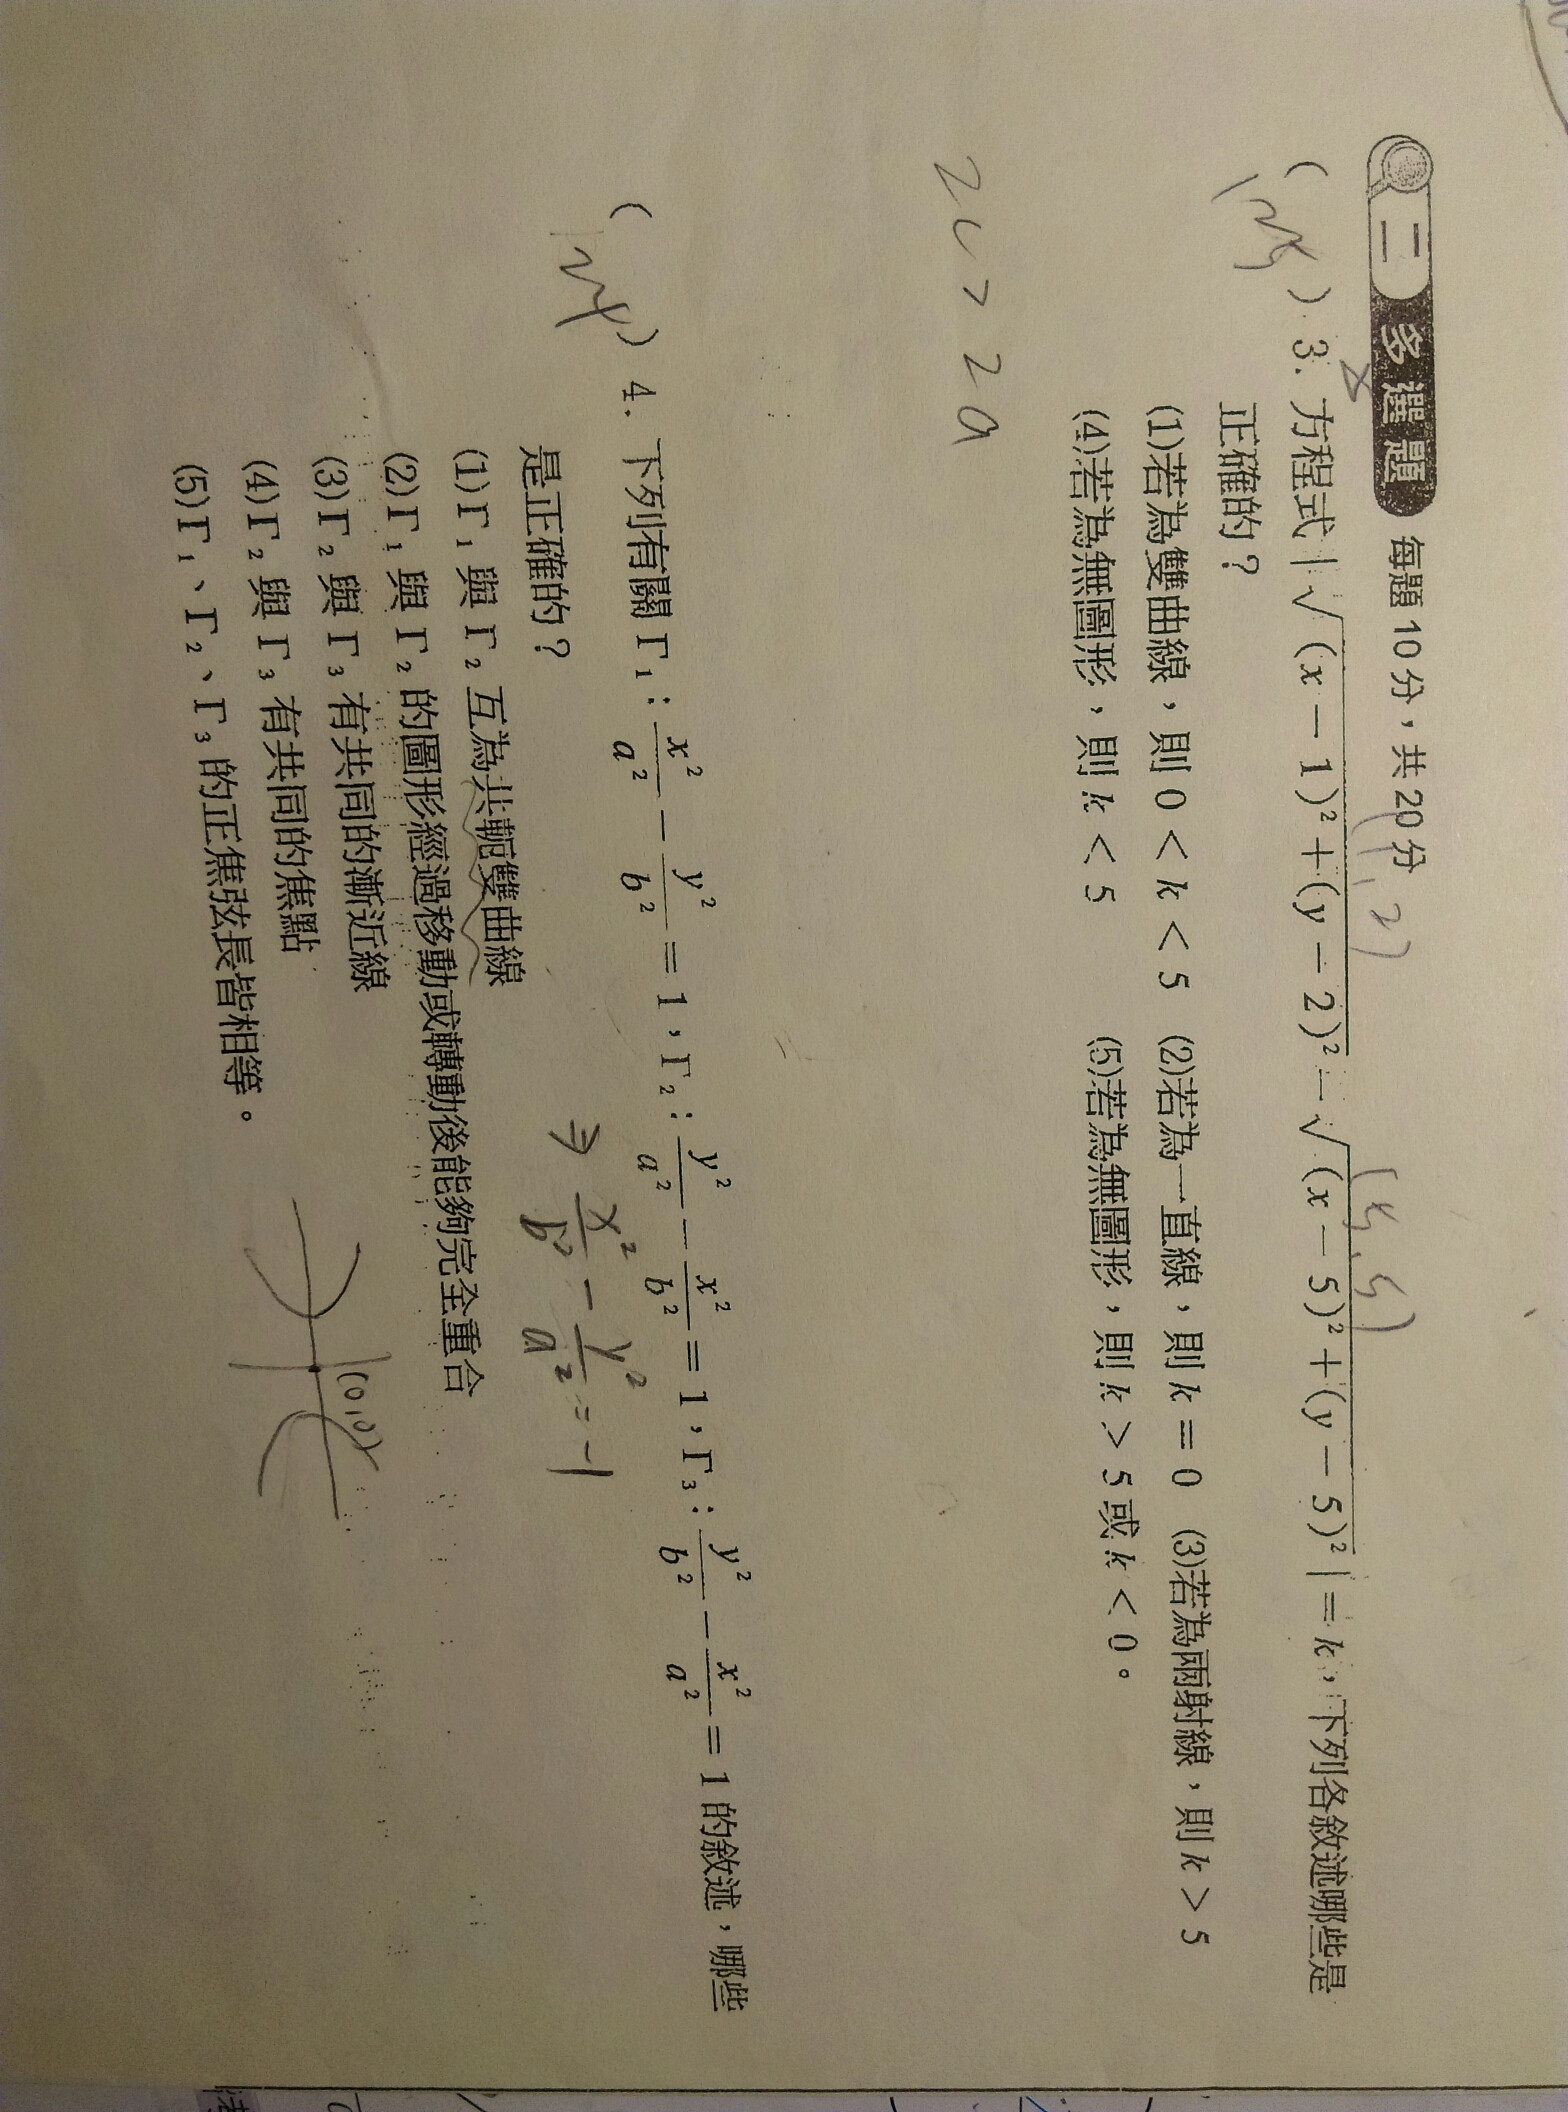 二 多選題 每題10分，共20分
(1,2) (5,5)
( ) 3. 方程式|√(x－1)²＋(y－2)²－√(x－5)²＋(y－5)²|＝k，下列各敘述哪些是
正確的？
(1)若為雙曲線，則0＜k＜5 (2)若為一直線，則k＝0 (3)若為兩射線，則k＞5
(4)若為無圖形，則k＜5 (5)若為無圖形，則k＞5或k＜0。
2c > 2a
( 124 ) 4. 下列有關Γ₁：x²/a²－y²/b²＝1，Γ₂：y²/a²－x²/b²＝1，Γ₃：y²/b²－x²/a²＝1的敘述，哪些
是正確的？
⇒ x²/b² - y²/a² = -1
(1)Γ₁與Γ₂互為共軛雙曲線
(2)Γ₁與Γ₂的圖形經過移動或轉動後能夠完全重合
(3)Γ₂與Γ₃有共同的漸近線
(4)Γ₂與Γ₃有共同的焦點
(0,0)
(5)Γ₁、Γ₂、Γ₃的正焦弦長皆相等。